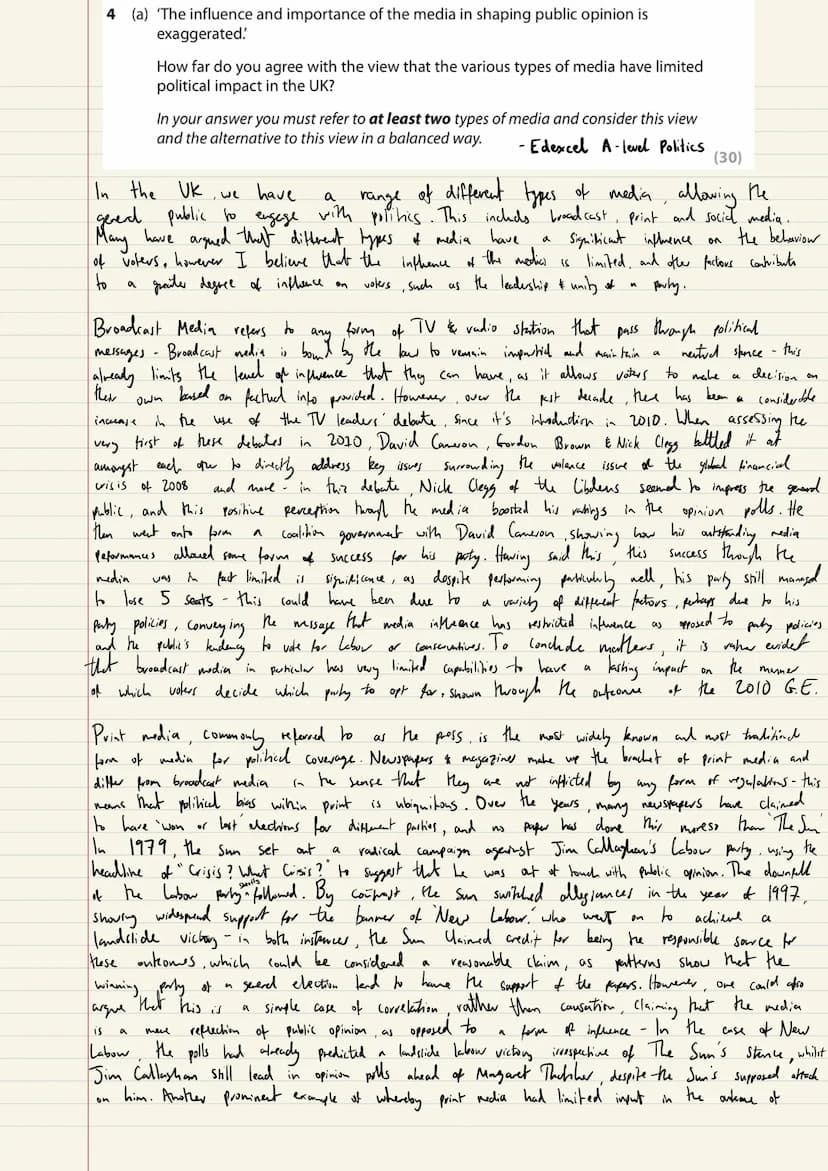 4 (a) ‘The influence and importance of the media in shaping public opinion is
exaggerated.’
How far do you agree with the view that the various types of media have limited
political impact in the UK?
In your answer you must refer to at least two types of media and consider this view
and the alternative to this view in a balanced way.
- Edexcel A-level Politics
(30)
In the UK, we have a range of different types of media, allowing the
general public to engage with politics. This includes broadcast, print and social media.
Many have argued that different types of media have a significant influence on the behaviour
of voters, however I believe that the influence of the media is limited, and other factors contribute
to a greater degree of influence on voters, such as the leadership & unity of a party.
Broadcast Media refers to any form of TV & radio station that pass through political
messages - Broadcast media is bound by the law to remain impartial and maintain a neutral stance - this
already limits the level of influence that they can have, as it allows voters to make a decision on
their own based on factual info provided. However, over the past decade, there has been a considerable
increase in the use of the TV leaders' debate, since it's introduction in 2010. When assessing the
very first of these debates in 2010, David Cameron, Gordon Brown & Nick Clegg battled it at
amongst each other to directly address key issues surrounding the valence issue of the global financial
crisis of 2008 and more - in this debate, Nick Clegg of the Libdems seemed to impress the general
public, and this positive perception through the media boosted his ratings in the opinion polls. He
then went onto form a coalition government with David Cameron, showing how his outstanding media
performances allowed some form of success for his party. Having said this, this success though the
media was in fact limited is significance, as despite performing particularly well, his party still managed
to lose 5 seats - this could have been due to a variety of different factors, perhaps due to his
party policies, conveying the message that media influence has restricted influence as opposed to party policies
and the public's tendency to vote for Labour or conservatives. To conclude matters, it is rather evident
that broadcast media in particular has very limited capabilities to have a lasting impact on the manner
of which voters decide which party to opt for, shown through the outcome of the 2010 G.E.
Print media, commonly referred to as the press, is the most widely known and most traditional
form of media for political coverage. Newspapers & magazines make up the bracket of print media and
differ from broadcast media in the sense that they are not inflicted by any form of regulations - this
means that political bias within print is ubiquitous. Over the years, many newspapers have claimed
to have 'won or lost' elections for different parties, and no paper has done this moreso than 'The Sun'
In 1979, the Sun set out a radical campaign against Jim Callaghan's Labour party, using the
headline of "Crisis? What Crisis?" to suggest that he was out of touch with public opinion. The downfall
of the Labour party followed. By contrast, the Sun switched allegiances in the year of 1997,
showing widespread support for the banner of 'New Labour,' who went on to achieve a
landslide victory - in both instances, the Sun claimed credit for being the responsible source for
these outcomes, which could be considered a reasonable claim, as patterns show that the
winning party of a general election tend to have the support of the papers. However, one could also
argue that this is a simple case of correlation, rather than causation, claiming that the media
is a mere reflection of public opinion, as opposed to a form of influence - In the case of New
Labour, the polls had already predicted a landslide labour victory irrespective of The Sun's stance, whilst
Jim Callaghan still lead in opinion polls ahead of Margaret Thatcher, despite the Sun's supposed attack
on him. Another prominent example of whereby print media had limited input in the outcome of